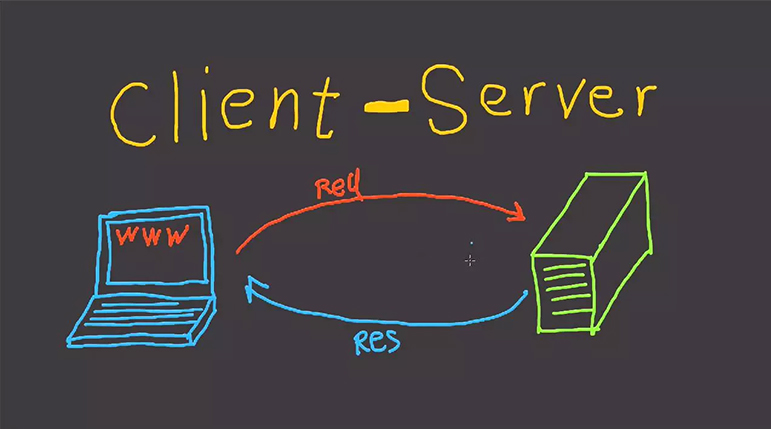 Client-Server
Req
www
Res